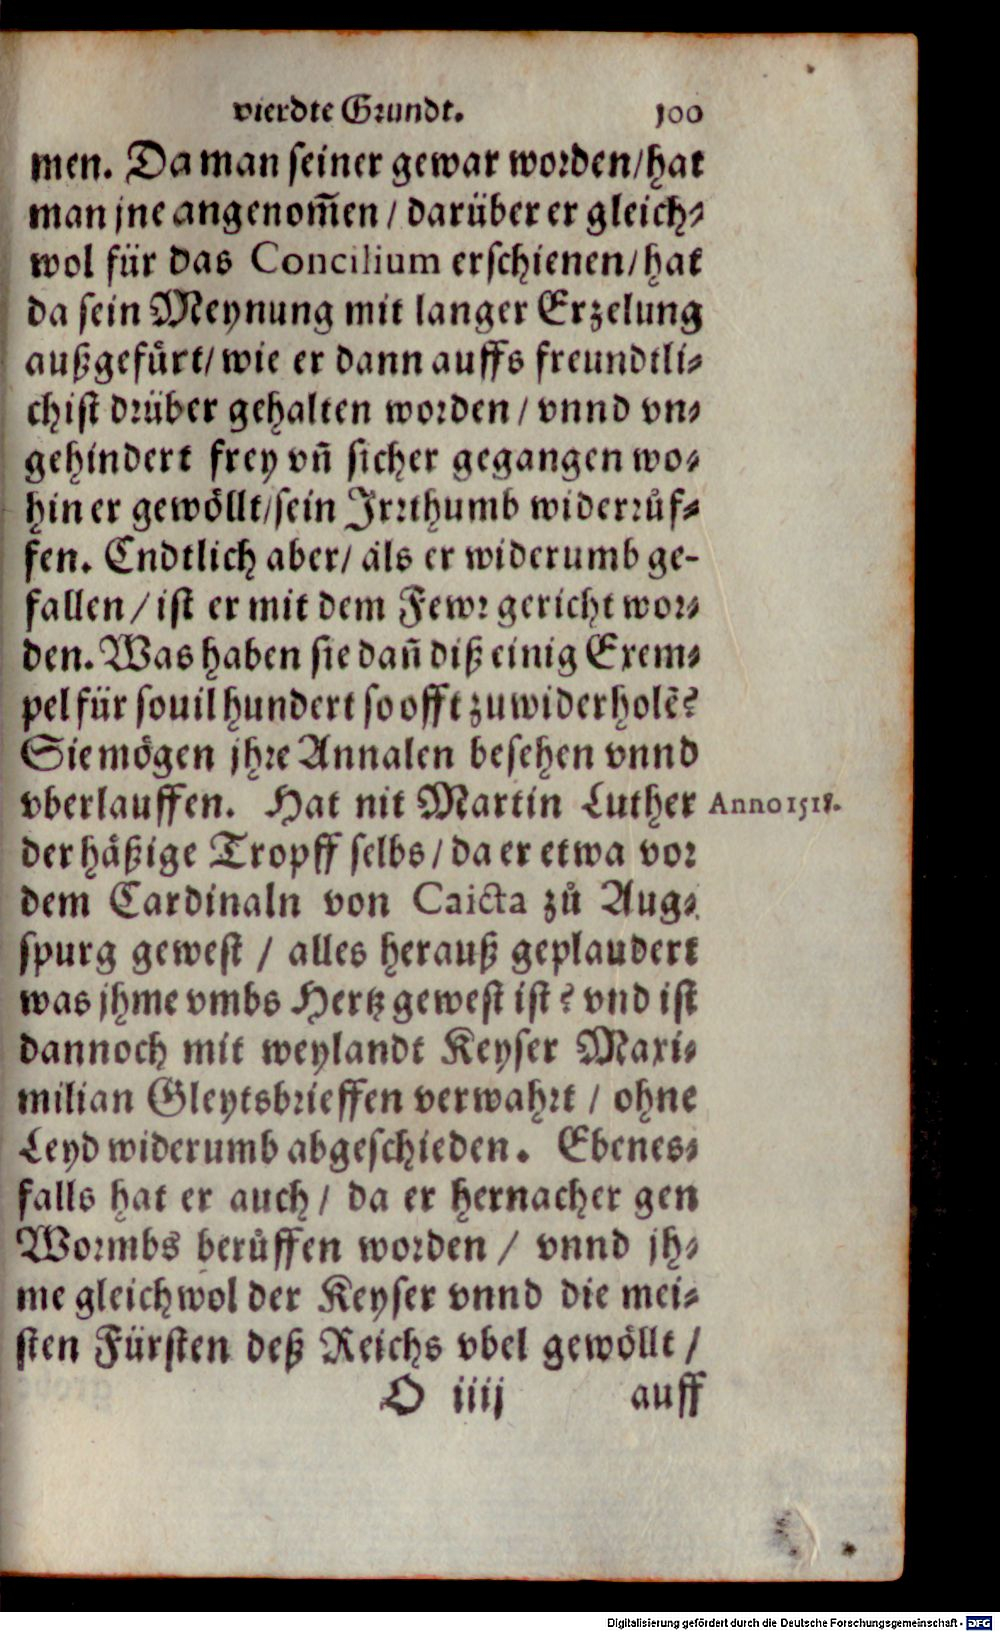 vierdte Grundt. 100
men. Da man seiner gewar worden/hat
man jne angenom̃en / darüber er gleich⸗
wol für das Concilium erschienen/hat
da sein Meynung mit langer Erzelung
außgefuͤrt/ wie er dann auffs freundtli⸗
chist drüber gehalten worden / vnnd vn⸗
gehindert frey vñ sicher gegangen wo⸗
hin er gewoͤllt/sein Irrthumb widerruͤf⸗
fen. Endtlich aber/ als er widerumb ge-
fallen / ist er mit dem Fewr gericht wor⸗
den. Was haben sie dañ diß einig Exem⸗
pel für souil hundert so offt zuwiderholẽ?
Sie moͤgen jhre Annalen besehen vnnd
vberlauffen. Hat nit Martin Luther
Anno 1518.
der haͤßige Tropff selbs / da er etwa vor
dem Cardinaln von Caicta zů Aug⸗
spurg gewest / alles herauß geplaudert
was jhme vmbs Hertz gewest ist? vnd ist
dannoch mit weylandt Keyser Maxi⸗
milian Gleytsbrieffen verwahrt / ohne
Leyd widerumb abgeschieden. Ebenes⸗
falls hat er auch / da er hernacher gen
Wormbs berůffen worden / vnnd jh⸗
me gleichwol der Keyser vnnd die mei⸗
sten Fürsten deß Reichs vbel gewoͤllt /
O iiij auff
Digitalisierung gefördert durch die Deutsche Forschungsgemeinschaft - DFG